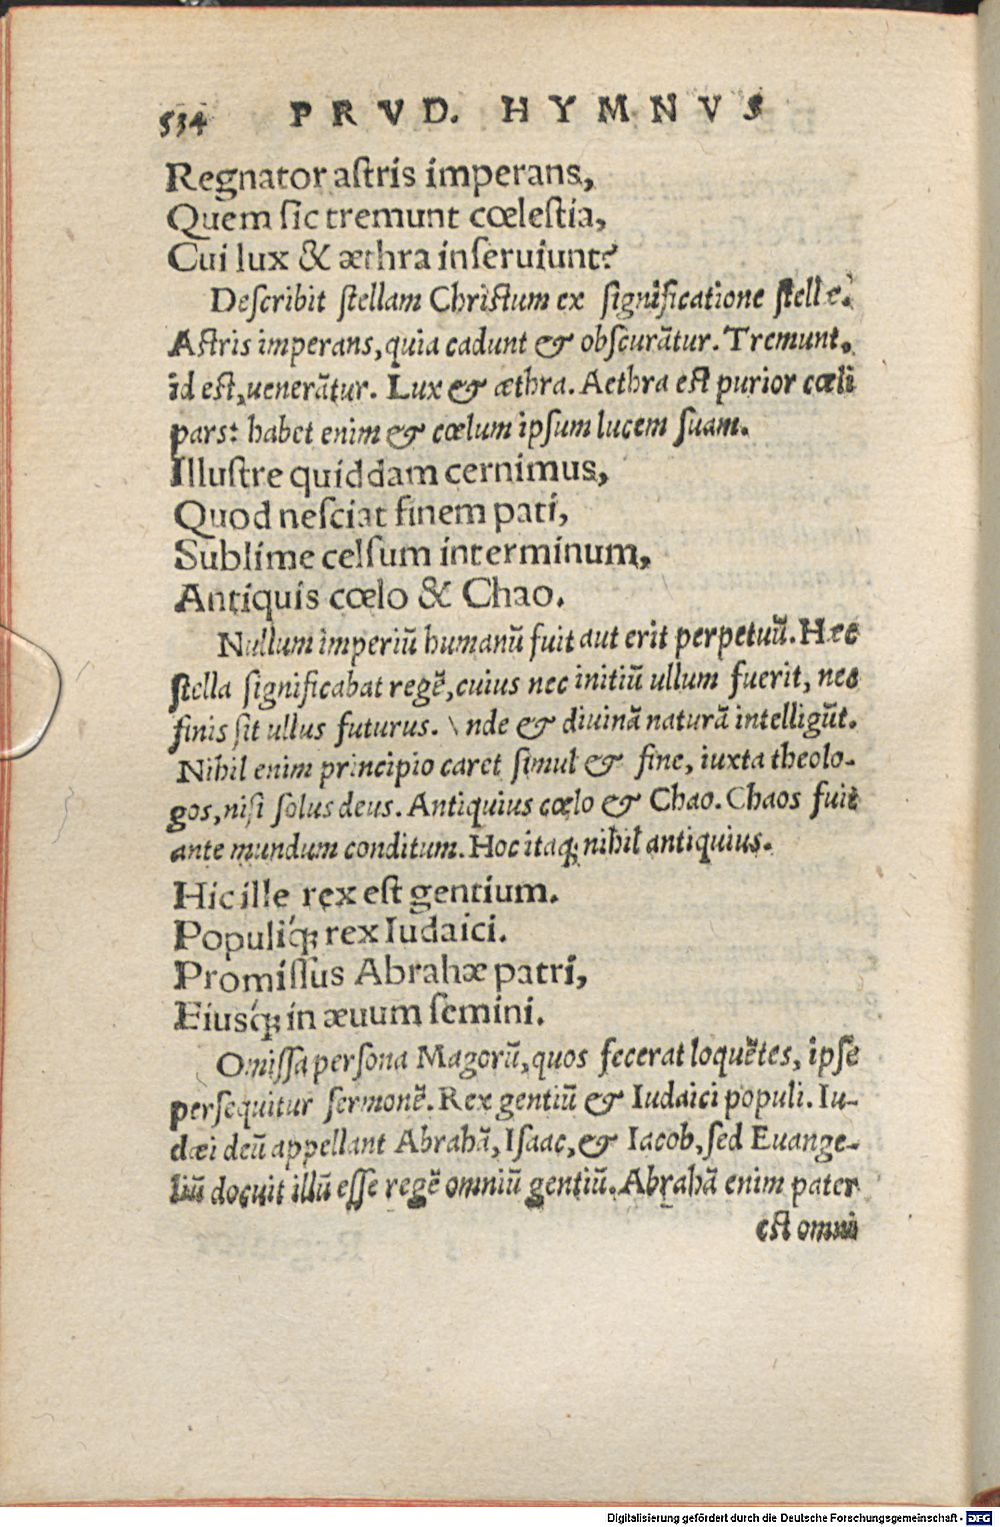 534 PRVD. HYMNVS
Regnator aſtris imperans,
Quem ſic tremunt cœleſtia,
Cui lux & æthra inſeruiunt?
Deſcribit ſtellam Chriſtum ex ſignificatione ſtellæ.
Aſtris imperans, quia cadunt & obſcurãtur. Tremunt,
id eſt, uenerãtur. Lux & æthra. Aethra eſt purior cœli
pars: habet enim & cœlum ipſum lucem ſuam.
Illuſtre quiddam cernimus,
Quod neſciat finem pati,
Sublime celſum interminum,
Antiquis cœlo & Chao.
Nullum imperiũ humanũ fuit aut erit perpetuũ. Hæc
ſtella ſignificabat regẽ, cuius nec initiũ ullum fuerit, nec
finis ſit ullus futurus. Vnde & diuinã naturã intelligũt.
Nihil enim principio caret ſimul & fine, iuxta theolo-
gos, niſi ſolus deus. Antiquius cœlo & Chao. Chaos fuit
ante mundum conditum. Hoc itaq; nihil antiquius.
Hic ille rex eſt gentium.
Populíq; rex Iudaici.
Promiſſus Abrahæ patri,
Eiusq́; in æuum ſemini.
Omiſſa perſona Magorũ, quos fecerat loquẽtes, ipſe
perſequitur ſermonẽ. Rex gentiũ & Iudaici populi. Iu-
dæi deũ appellant Abrahã, Iſaac, & Iacob, ſed Euange-
liũ docuit illũ eſſe regẽ omniũ gentiũ. Abrahã enim pater
eſt omni
Digitalisierung gefördert durch die Deutsche Forschungsgemeinschaft - DFG